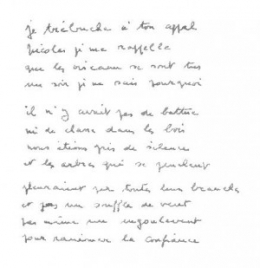 je trébuche à ton appel
Nicolas je me rappelle
que les oiseaux se sont tus
un soir je ne sais pourquoi
il n'y avait pas de battue
ni de chasse dans les bois
nous étions pris de silence
et les arbres qui se penchent
pleuraient par toutes leurs branches
et pas un souffle de vent
pas même un engoulevent
pour ramener la confiance